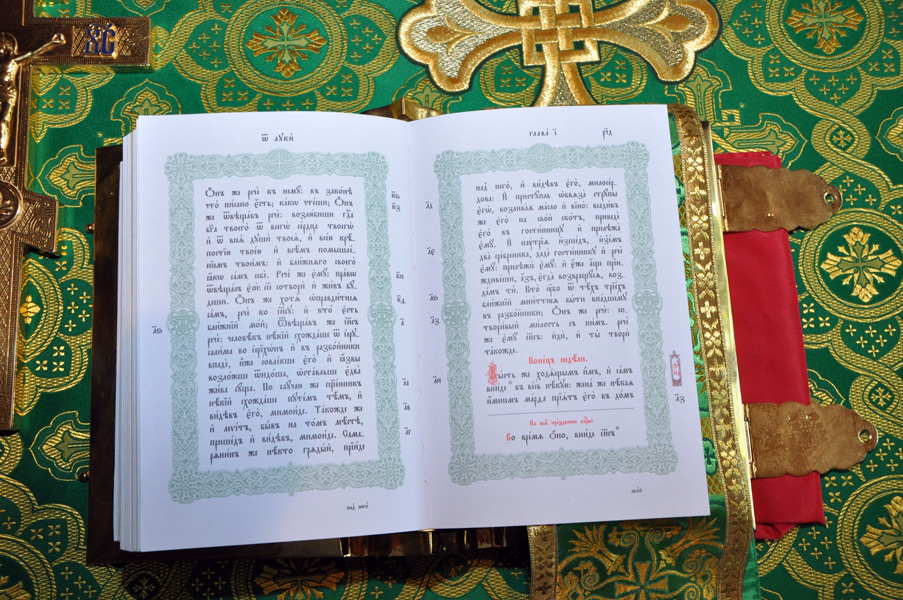 ХС
Ѿ ЛꙊКЍ
Ѻ҆́нъ же речѐ къ немꙋ̀: въ зако́нѣ
что̀ пи́сано є҆́сть; ка́кѡ чте́ши; Ѻ҆́нъ
же ѿвѣща́въ речѐ: возлю́биши гдⷭ҇а
бг҃а твоего̀ ѿ всегѡ̀ се́рдца твоегѡ̀
и҆ ѿ всеѧ̀ дꙋшѝ твоеѧ̀, и҆ все́ю крѣ́-
постїю твое́ю и҆ всѣ́мъ помышле́-
нїемъ твои́мъ: и҆ бли́жнѧго своего̀
ꙗ҆́кѡ са́мъ себѐ. Рече́ же є҆мꙋ̀: пра́вѡ
ѿвѣща́лъ є҆сѝ: сїѐ сотворѝ и҆ жи́въ бꙋ́-
деши. Ѻ҆́нъ же хотѧ̀ ѡ҆правди́тисѧ
са́мъ, речѐ ко і҆и҃сꙋ: и҆ кто̀ є҆́сть
бли́жнїй мо́й; Ѿвѣща́въ же і҆и҃съ
речѐ: человѣ́къ нѣ́кїй схожда́ше ѿ і҆ерꙋ-
сали́ма во і҆ерїхѡ́нъ и҆ въ разбо́йники
впадѐ, и҆̀же совле́кше є҆го̀ и҆ ꙗ҆́звы
возло́жше ѿидо́ша, ѡ҆ста́вльше є҆два̀
жи́ва сꙋ́ща. По слꙋ́чаю же сщ҃е́нникъ
нѣ́кїй схожда́ше пꙋте́мъ тѣ́мъ, и҆
ви́дѣвъ є҆го̀, мимои́де. Та́кожде же
и҆ леѵі́тъ, бы́въ на то́мъ мѣ́стѣ,
прише́дъ и҆ ви́дѣвъ, мимои́де. Самѧ-
рѧни́нъ же нѣ́кто грѧды́й, прїи́де
над̾ него̀
ГЛАВА̀ І҃
рн҃д
над̾ него̀, и҆ ви́дѣвъ є҆го̀, милосе́р-
дова: И҆ пристꙋ́пль ѡ҆бвѧза̀ стрꙋ́пы
є҆гѡ̀, возлива́ѧ ма́сло и҆ вїно̀: всади́въ
же є҆го̀ на сво́й ско́тъ, приведѐ
є҆го̀ въ гости́нницꙋ и҆ прилѣжа̀
є҆мꙋ̀. И҆ наꙋ́трїѧ и҆зше́дъ, и҆з̾е́мь
два̀ сре́брєника, дадѐ гости́нникꙋ и҆ речѐ
є҆мꙋ̀: прилѣжѝ є҆мꙋ̀: и҆ є҆́же а҆́ще прї-
иждиве́ши, а҆́зъ, є҆гда̀ возвращꙋ́сѧ, воз-
да́мъ тѝ. Кто̀ ᲂу҆̀бо ѿ тѣ́хъ трїе́хъ
бли́жнїй мни́ттисѧ бы́ти впа́дшемꙋ
въ разбо́йники; Ѻ҆́нъ же речѐ: со-
твори́вый ми́лость съ ни́мъ. рече́
же є҆мꙋ̀ і҆и҃съ: и҆дѝ, и҆ ты̀ творѝ
та́кожде.
Коне́цъ недѣ́ли.
Бы́сть же ходѧ́щымъ и҆̀мъ, и҆ са́мъ
вни́де въ ве́сь нѣ́кꙋю: жена́ же нѣ́каѧ
и҆́менемъ ма́рѳа прїѧ́тъ є҆го̀ въ до́мъ
Во вре́мѧ ѻ҆́но, вни́де і҆и҃съ
сво́й